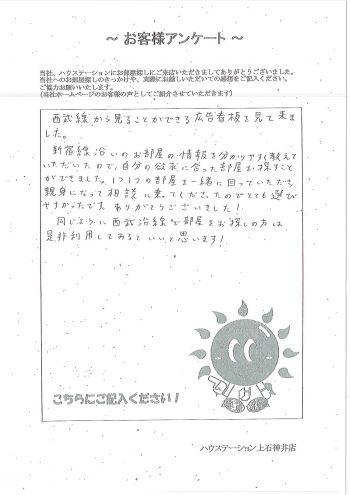 ～ お客様アンケート ～
当社、ハウステーションにお部屋探しにご来店いただきましてありがとうございました。
当社へのお部屋探しのきっかけや、実際にお越しいただいての感想をご記入ください。
ご協力お願いいたします。
(当社ホームページのお客様の声としてご紹介させていただきます)
西武線から見ることができる広告看板を見て来ま
した。
新宿線沿いのお部屋の情報を分かりやすく教えて
いただいたので、自分の欲求に合った部屋を探すこと
ができました。1つ1つの部屋を一緒に回っていただき、
親身になって相談に乗てくださったのでとても選び
やすかったです。ありがとうございました！
同じように西武沿線で部屋をお探しの方は
是非利用してみるといいと思います！
こちらにご記入ください！
ハウステーション上石神井店